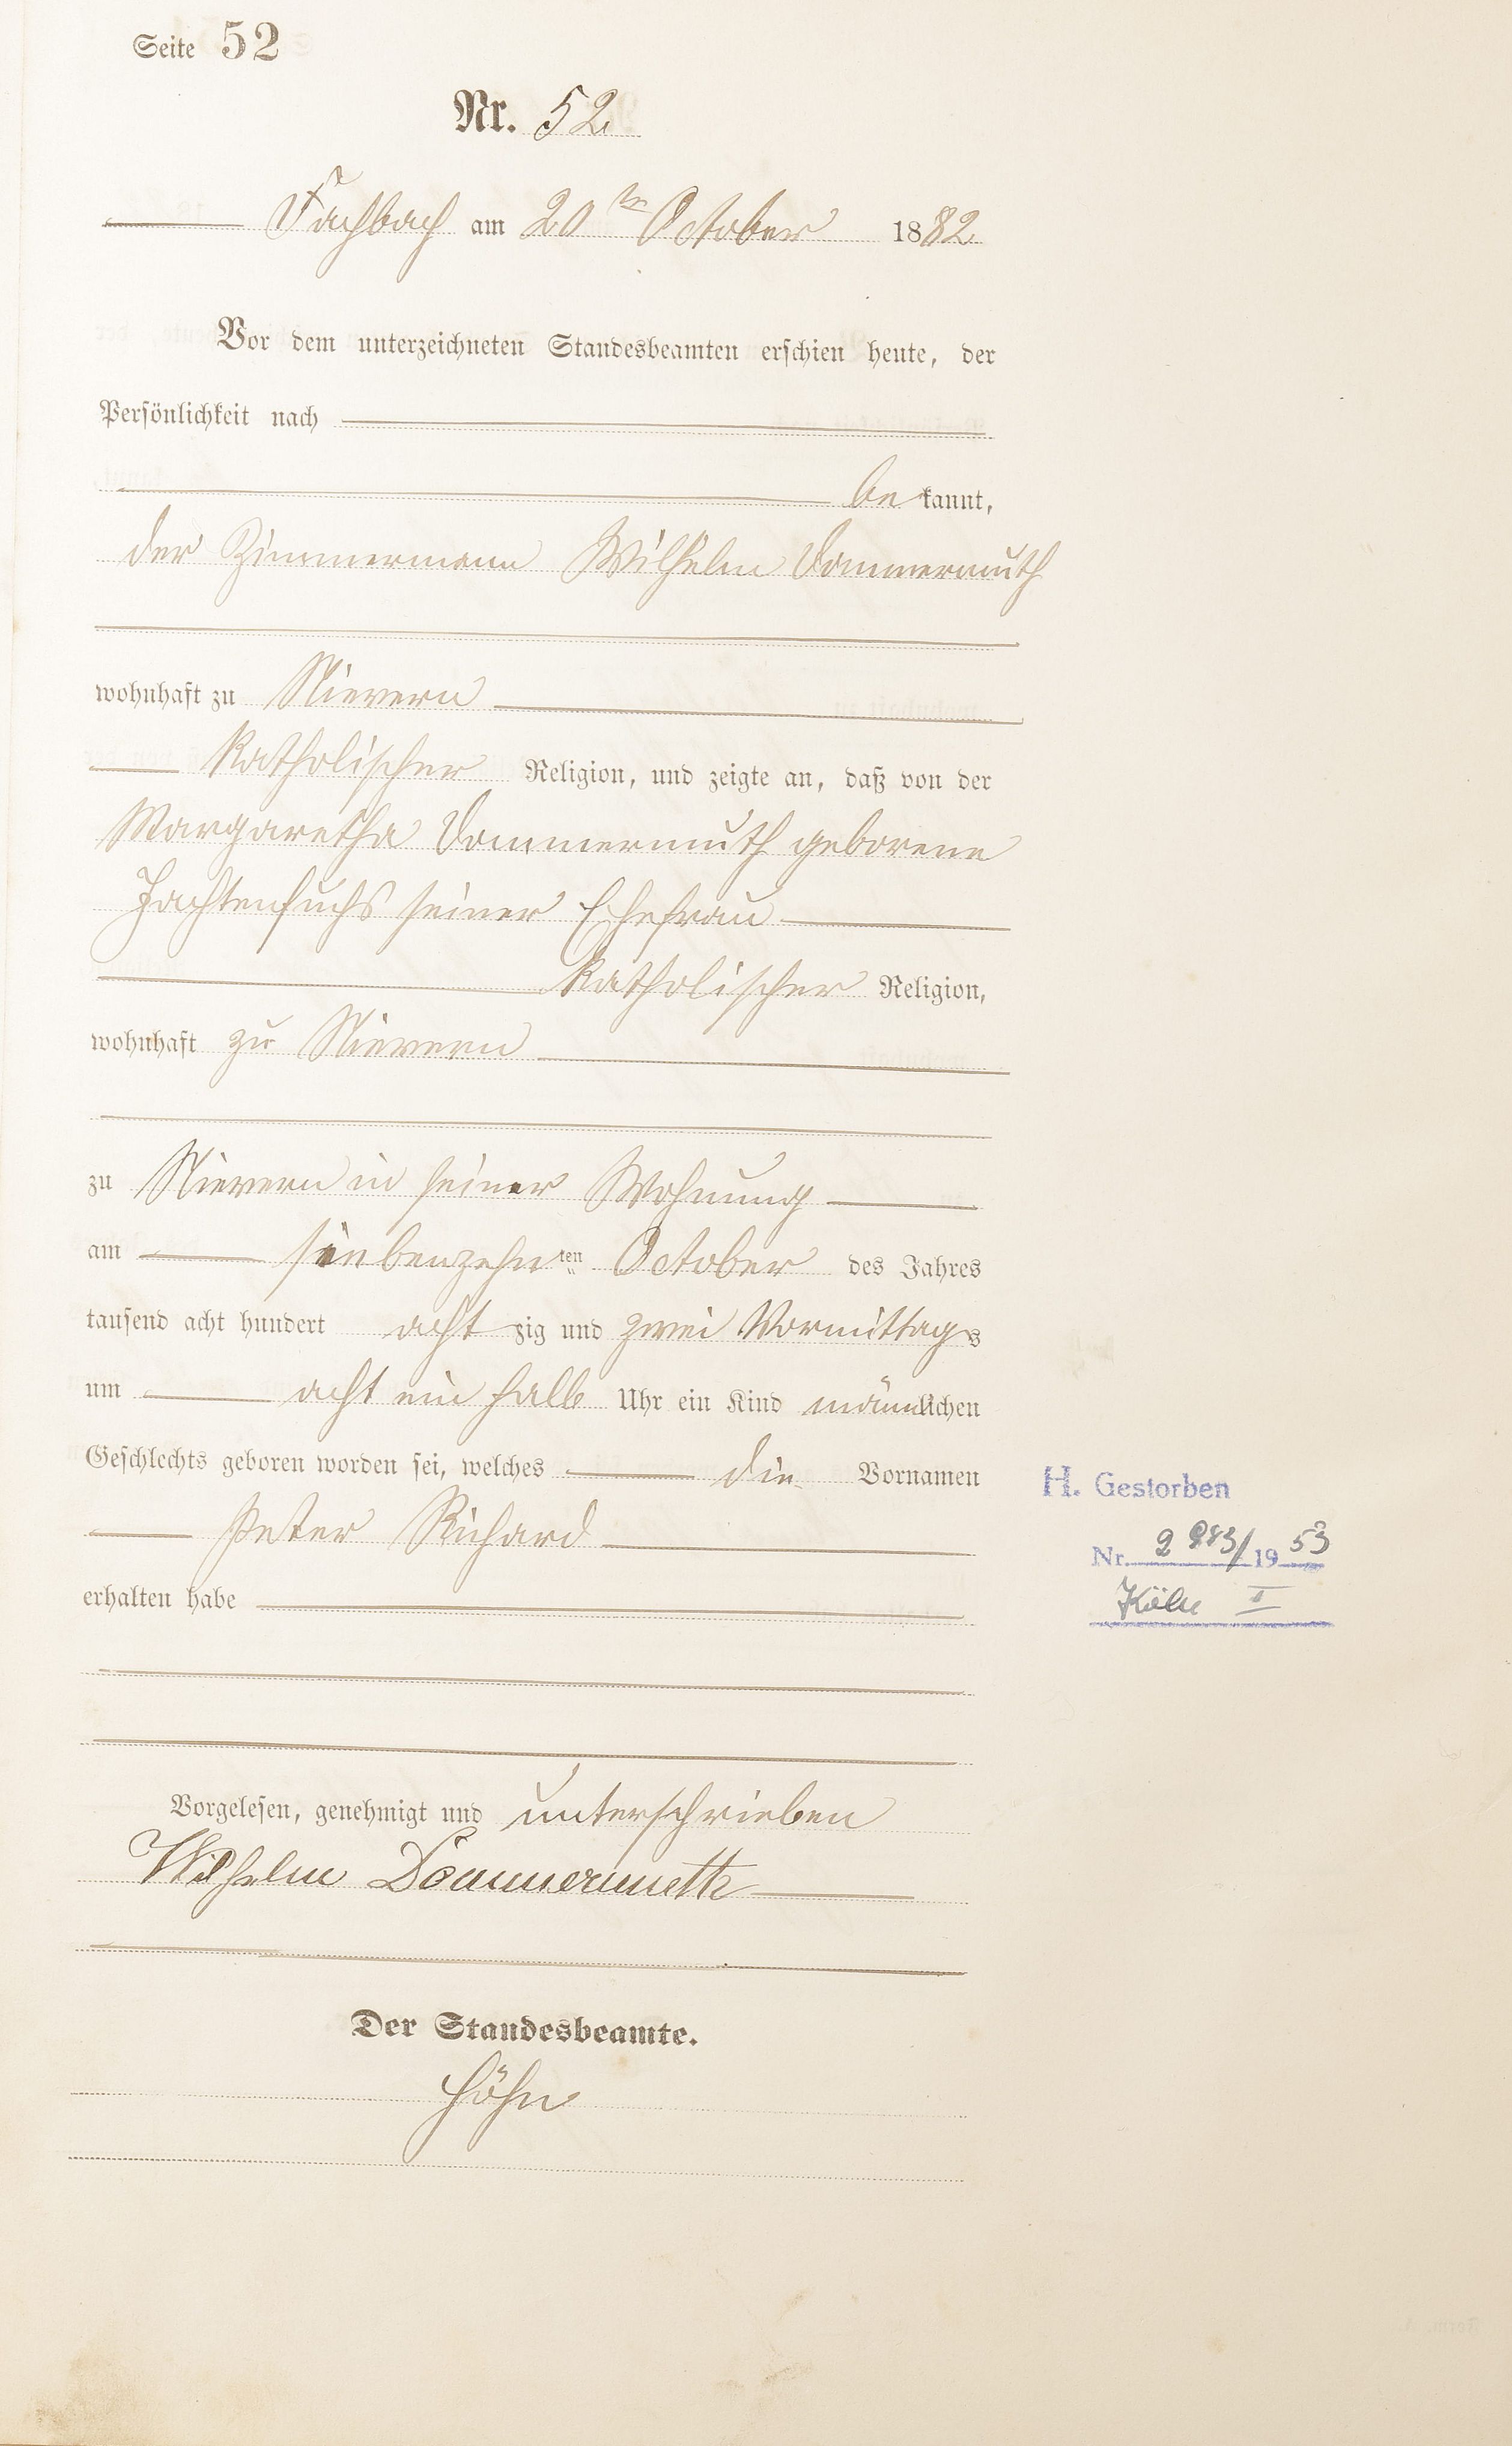 Seite 52
Nr. 52
Fachbach am 20ten October 1882
Vor dem unterzeichneten Standesbeamten erschien heute, der
Persönlichkeit nach
be kannt,
der Zimmermann Wilhelm Dommermuth
wohnhaft zu Nievern
katholischer Religion, und zeigte an, daß von der
Margaretha Dommermuth geborene
Jachtenfuchs seiner Ehefrau
katholischer Religion,
wohnhaft zu Nievern
zu Nievern in seiner Wohnung
am siebenzehnten October des Jahres
tausend acht hundert acht zig und zwei Vormittags
um acht ein halb Uhr ein Kind männlichen
Geschlechts geboren worden sei, welches die Vornamen
Peter Richard
erhalten habe
H. Gestorben
Nr. 2283/1953
Köln I
Vorgelesen, genehmigt und unterschrieben
Wilhelm Dommermuth
Der Standesbeamte.
Höhn